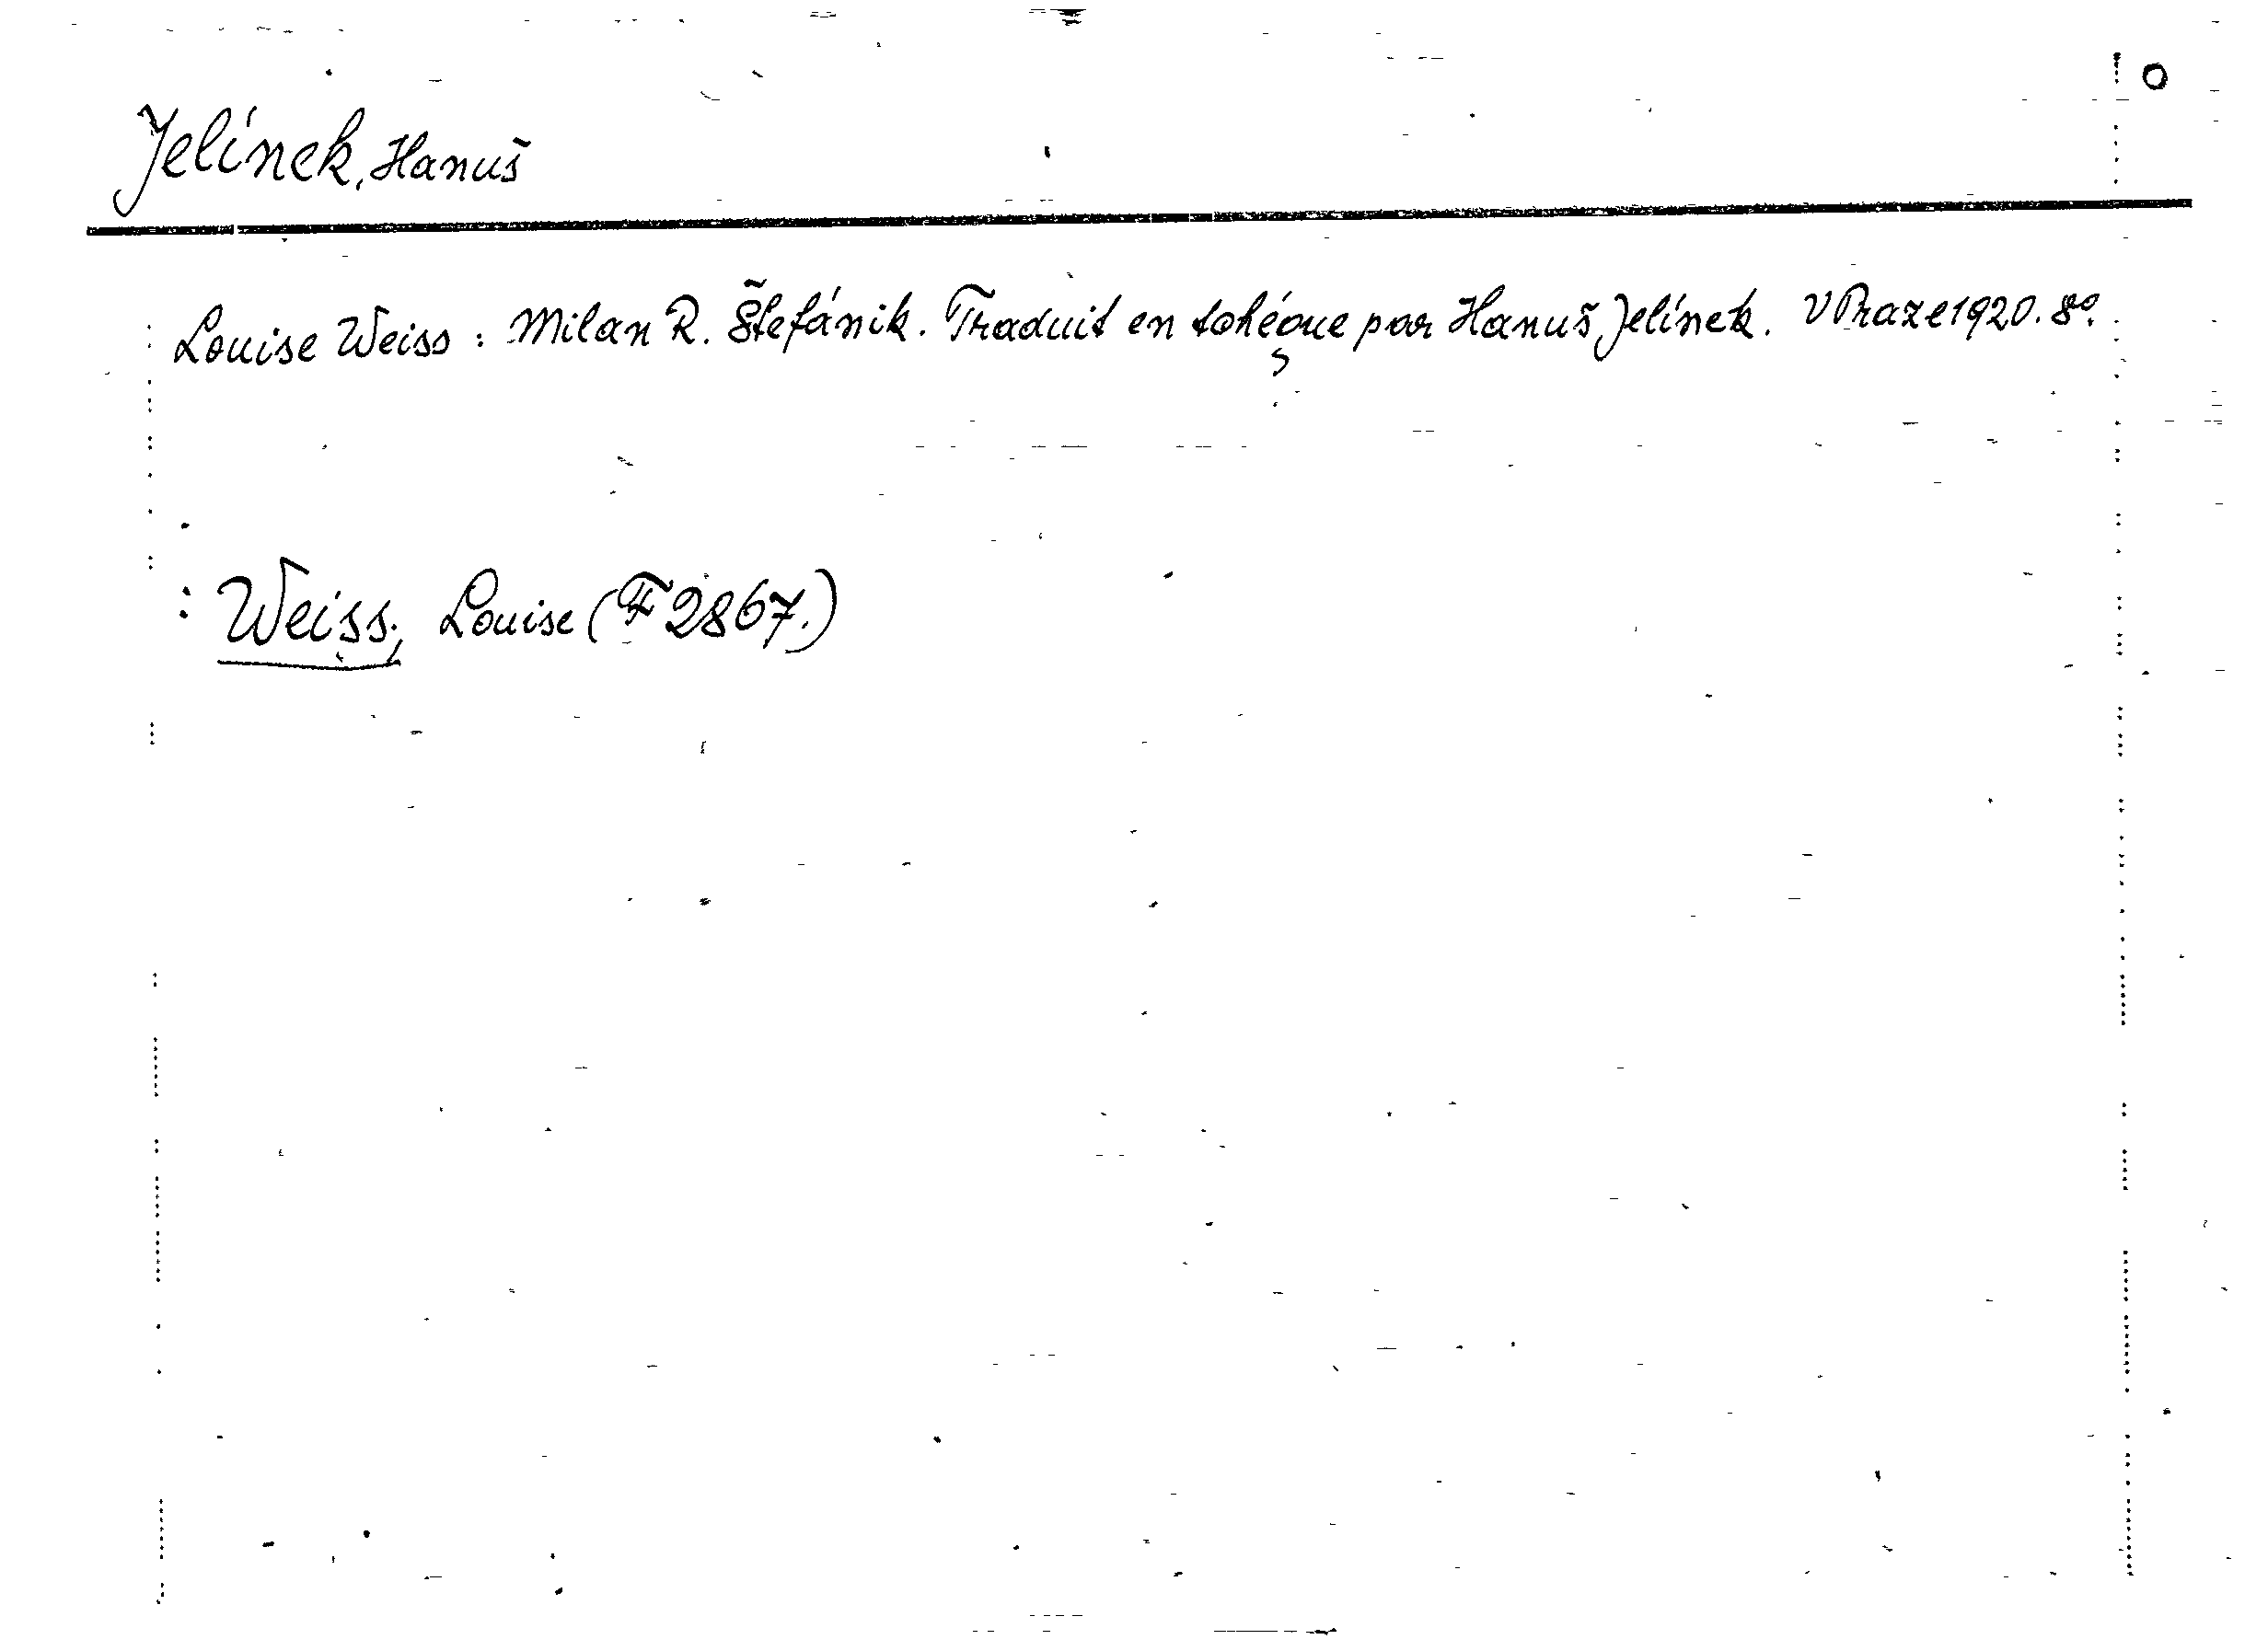 Jelínek, Hanuš
Louise Weiss: Milan R. Štefánik. Traduit en tchéque par Hanuš Jelínek. V Praze 1920. 8°.
: Weiss, Louise (F 2867.)